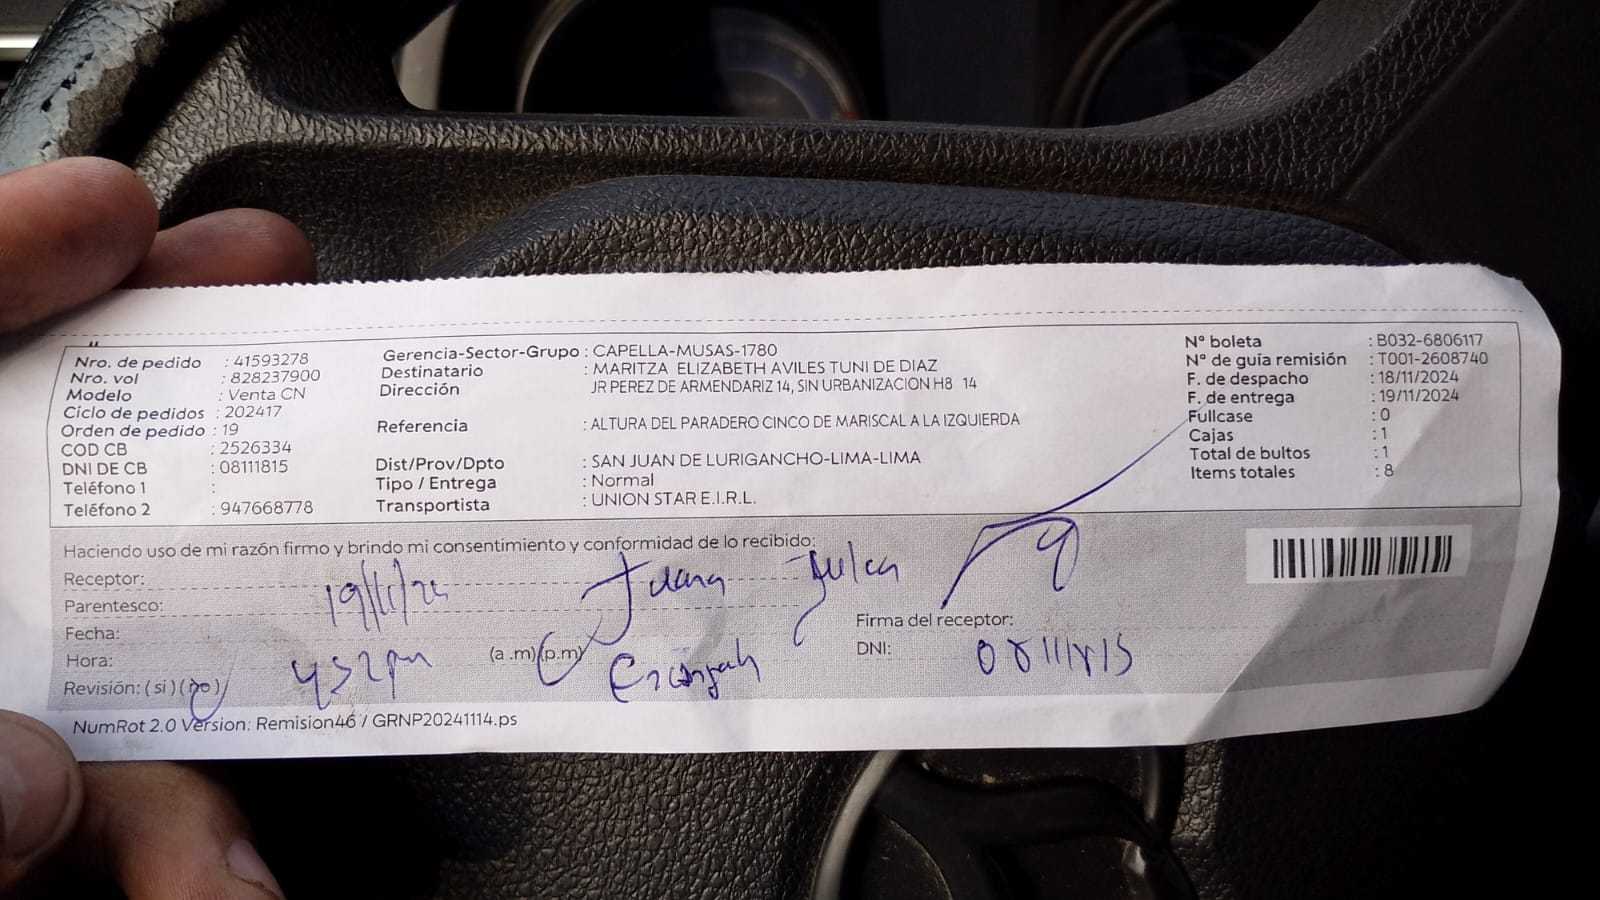 Nro. de pedido : 41593278
Nro. vol : 828237900
Modelo : Venta CN
Ciclo de pedidos : 202417
Orden de pedido : 19
COD CB : 2526334
DNI DE CB : 08111815
Teléfono 1 :
Teléfono 2 : 947668778
Gerencia-Sector-Grupo : CAPELLA-MUSAS-1780
Destinatario : MARITZA ELIZABETH AVILES TUNI DE DIAZ
Dirección JR PEREZ DE ARMENDARIZ 14, SIN URBANIZACION H8 14
Referencia : ALTURA DEL PARADERO CINCO DE MARISCAL A LA IZQUIERDA
Dist/Prov/Dpto : SAN JUAN DE LURIGANCHO-LIMA-LIMA
Tipo / Entrega : Normal
Transportista : UNION STAR E.I.R.L.
N° boleta : B032-6806117
N° de guía remisión : T001-2608740
F. de despacho : 18/11/2024
F. de entrega : 19/11/2024
Fullcase : 0
Cajas : 1
Total de bultos : 1
Items totales : 8
Haciendo uso de mi razón firmo y brindo mi consentimiento y conformidad de lo recibido:
Receptor: Juana
Parentesco:
Fecha: 19/11/24
Hora: 432pm (a.m)(p.m)
Revisión: (si)(no)
Firma del receptor:
DNI: 08111815
NumRot 2.0 Version: Remision46 / GRNP20241114.ps